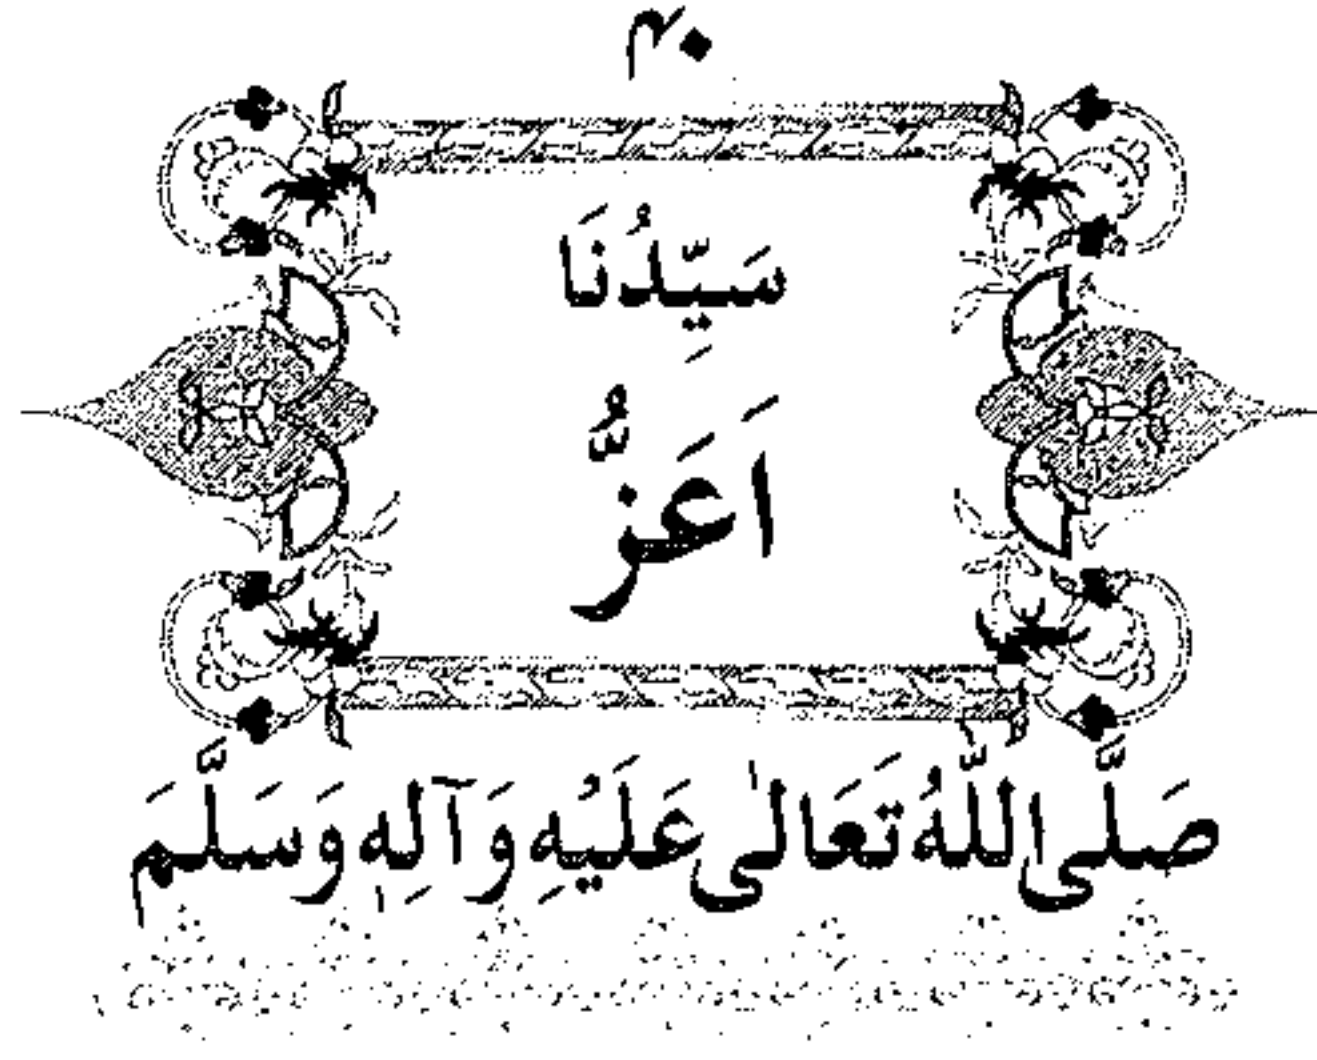 ۴۰
سَيِّدُنَا
اَعَزُّ
صَلَّی اللّٰهُ تَعَالٰی عَلَيْهِ وَآلِهٖ وَسَلَّمَ